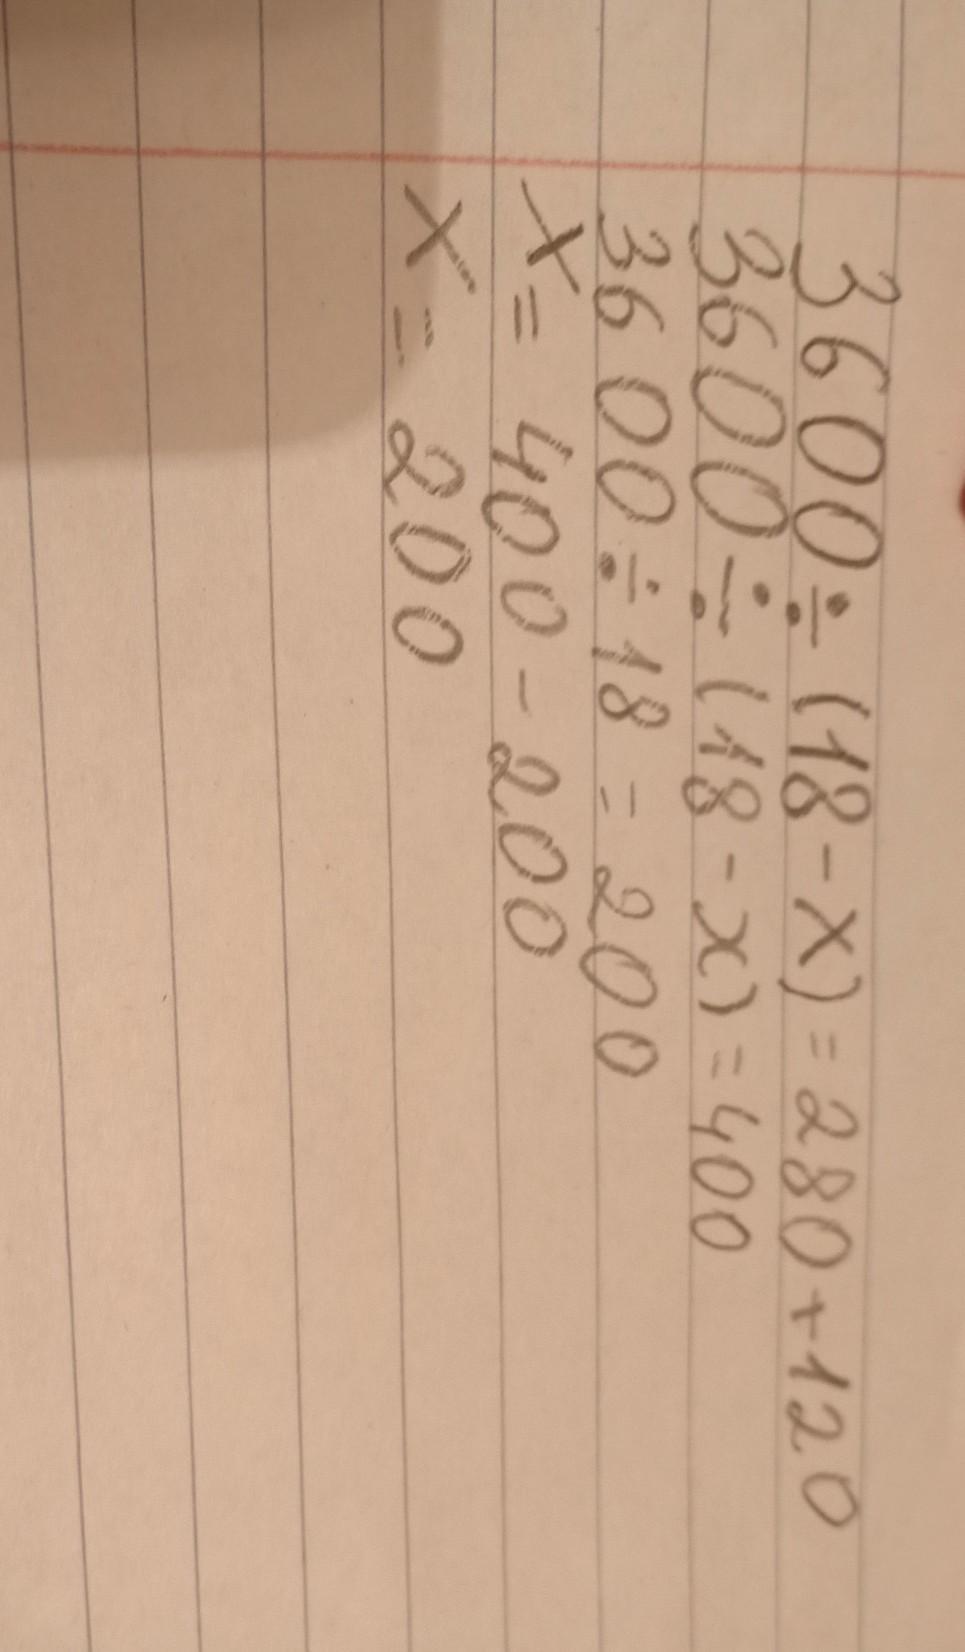 3600÷(18-x)=280+120
3600÷(18-x)=400
3600÷18=200
x=400-200
x=200